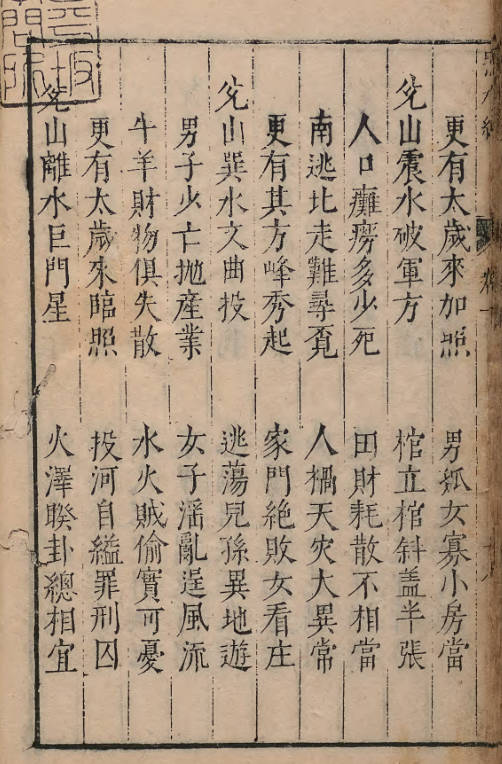 更有太歲來加照　男孤女寡小房當
兊山震水破軍方　棺立棺斜盖半張
人口癱癆多少死　田財耗散不相當
南逃北走難尋覔　人禍天灾大異常
更有其方峰秀起　家門絶敗女看庄
兊山巽水文曲投　逃蕩兒孫異地遊
男子少亡抛産業　女子滛亂逞風流
牛羊財物俱失散　水火賊偷實可憂
更有太歲來臨照　投河自縊罪刑囚
兊山離水巨門星　火澤睽卦總相宜